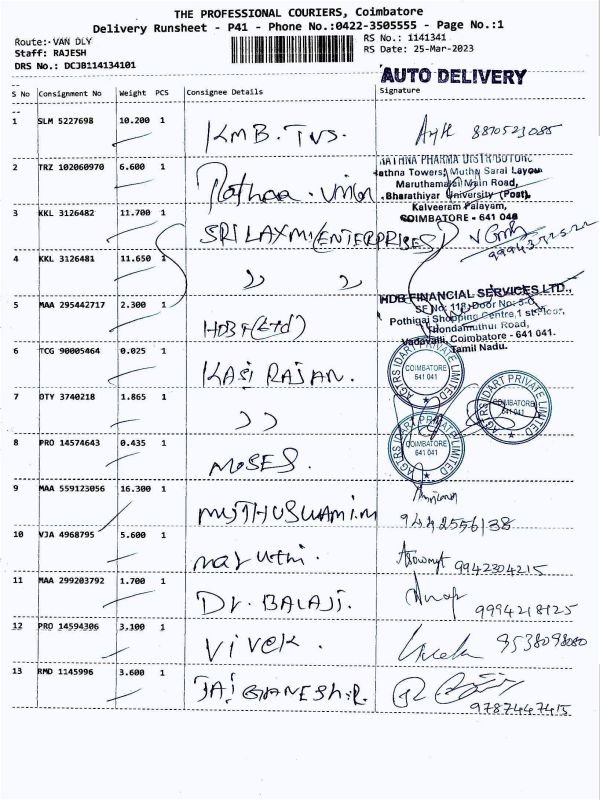 THE PROFESSIONAL COURIERS, Coimbatore
Delivery Runsheet - P41 - Phone No.:0422-3505555 - Page No.:1
Route:-VAN DLY
RS No.: 1141341
Staff: RAJESH
RS Date: 25-Mar-2023
DRS No.: DCJB114134101
AUTO DELIVERY
S No Consignment No Weight PCS Consignee Details Signature
1 SLM 5227698 10.200 1 KMB. TVS. 8870523085
2 TRZ 102060970 6.600 1
RATHNA PHARMA DISTRIBUTORS
Rathna Towers, Muthu Sarai Layout
Maruthamalai Main Road,
Bharathiyar University (Post),
Kalveeram Palayam,
COIMBATORE - 641 046
3 KKL 3126482 11.700 1 SRI LAXMI ENTERPRISES
4 KKL 3126481 11.650 1 ,, ,,
5 MAA 295442717 2.300 1 HDBF (Ltd)
HDB FINANCIAL SERVICES LTD.,
SF No: 118, Door No: 5-C,
Pothigai Shopping Centre, 1st Floor,
Thondamuthur Road,
Vadavalli, Coimbatore - 641 041.
Tamil Nadu.
6 TCG 90005464 0.025 1 KASI RAJAN.
AGTRS IDART PRIVATE LIMITED
COIMBATORE
641 041
7 DTY 3740218 1.865 1 ,,
AGTRS IDART PRIVATE LIMITED
COIMBATORE
641 041
8 PRO 14574643 0.435 1 MOSES.
AGTRS IDART PRIVATE LIMITED
COIMBATORE
641 041
9 MAA 559123056 16.300 1 MUTHUSWAMI.M
9442556138
10 VJA 4968795 5.600 1 maruthi. 9942304215
11 MAA 299203792 1.700 1 Dr. BALAJI.
9994218125
12 PRO 14594306 3.100 1 Vivek. 9538098080
13 RMD 1145996 3.600 1 JAI GANESH.R.
9787447415